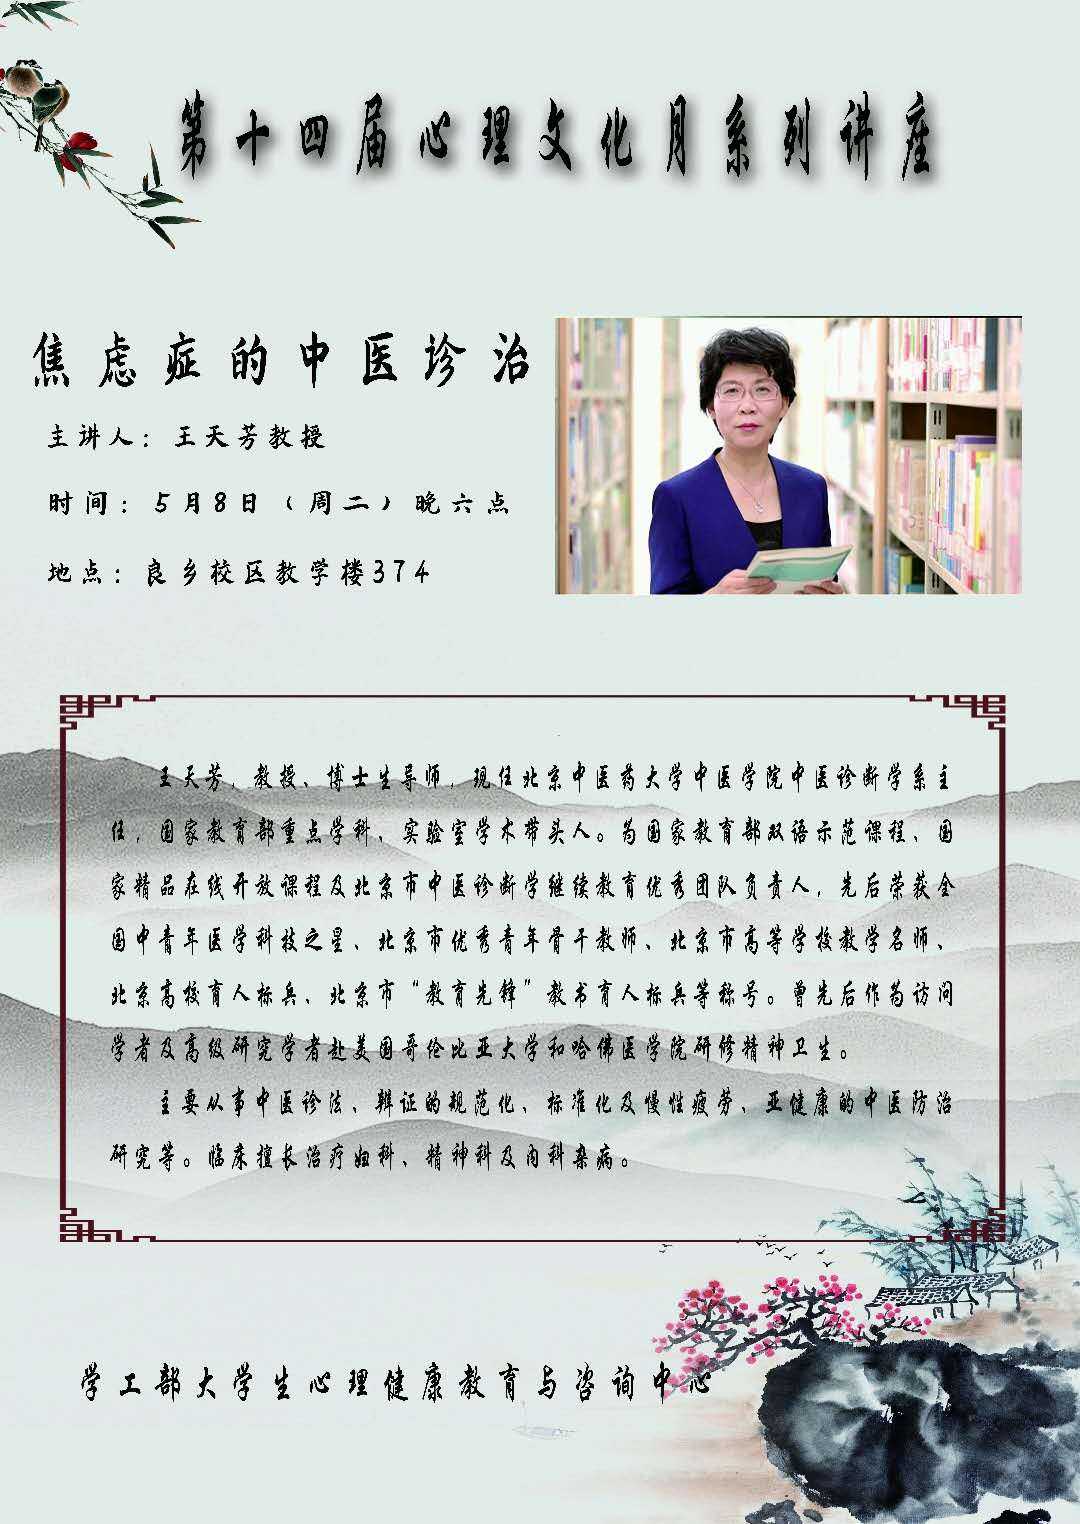 第十四届心理文化月系列讲座
焦虑症的中医诊治
主讲人：王天芳教授
时间：5月8日（周二）晚六点
地点：良乡校区教学楼374
王天芳，教授、博士生导师，现任北京中医药大学中医学院中医诊断学系主
任，国家教育部重点学科、实验室学术带头人。为国家教育部双语示范课程、国
家精品在线开放课程及北京市中医诊断学继续教育优秀团队负责人，先后荣获全
国中青年医学科技之星、北京市优秀青年骨干教师、北京市高等学校教学名师、
北京高校育人标兵、北京市“教育先锋”教书育人标兵等称号。曾先后作为访问
学者及高级研究学者赴美国哥伦比亚大学和哈佛医学院研修精神卫生。
主要从事中医诊法、辨证的规范化、标准化及慢性疲劳、亚健康的中医防治
研究等。临床擅长治疗妇科、精神科及内科杂病。
学工部大学生心理健康教育与咨询中心